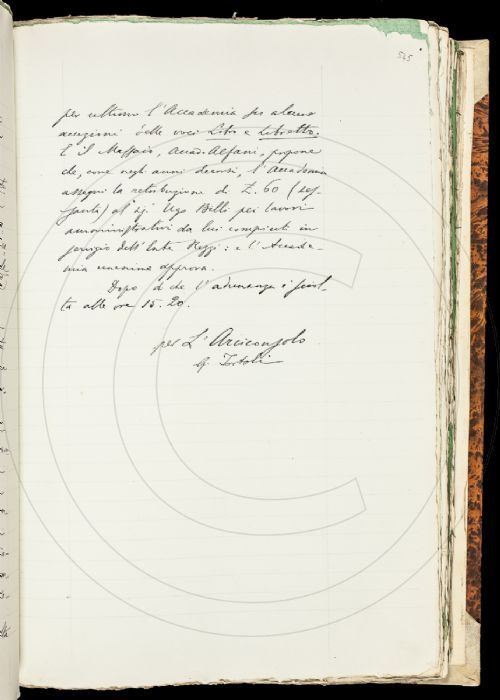 525
per ultimo l'Accademia fra alcune
accezioni delle voci Libro e Libretto.
E il Massaio, Accad. Alfani, propone
che, come negli anni decorsi, l'Accademia
assegni la retribuzione di L. 60 (ses-
santa) al sig. Ugo Billi pei lavori
amministrativi da lui compiuti in
servizio dell'Ente Rezzi: e l'Accade-
mia unanime approva.
Dopo di che l'adunanza è sciol-
ta alle ore 15.20.
per L'Arciconsolo
G. Tortoli